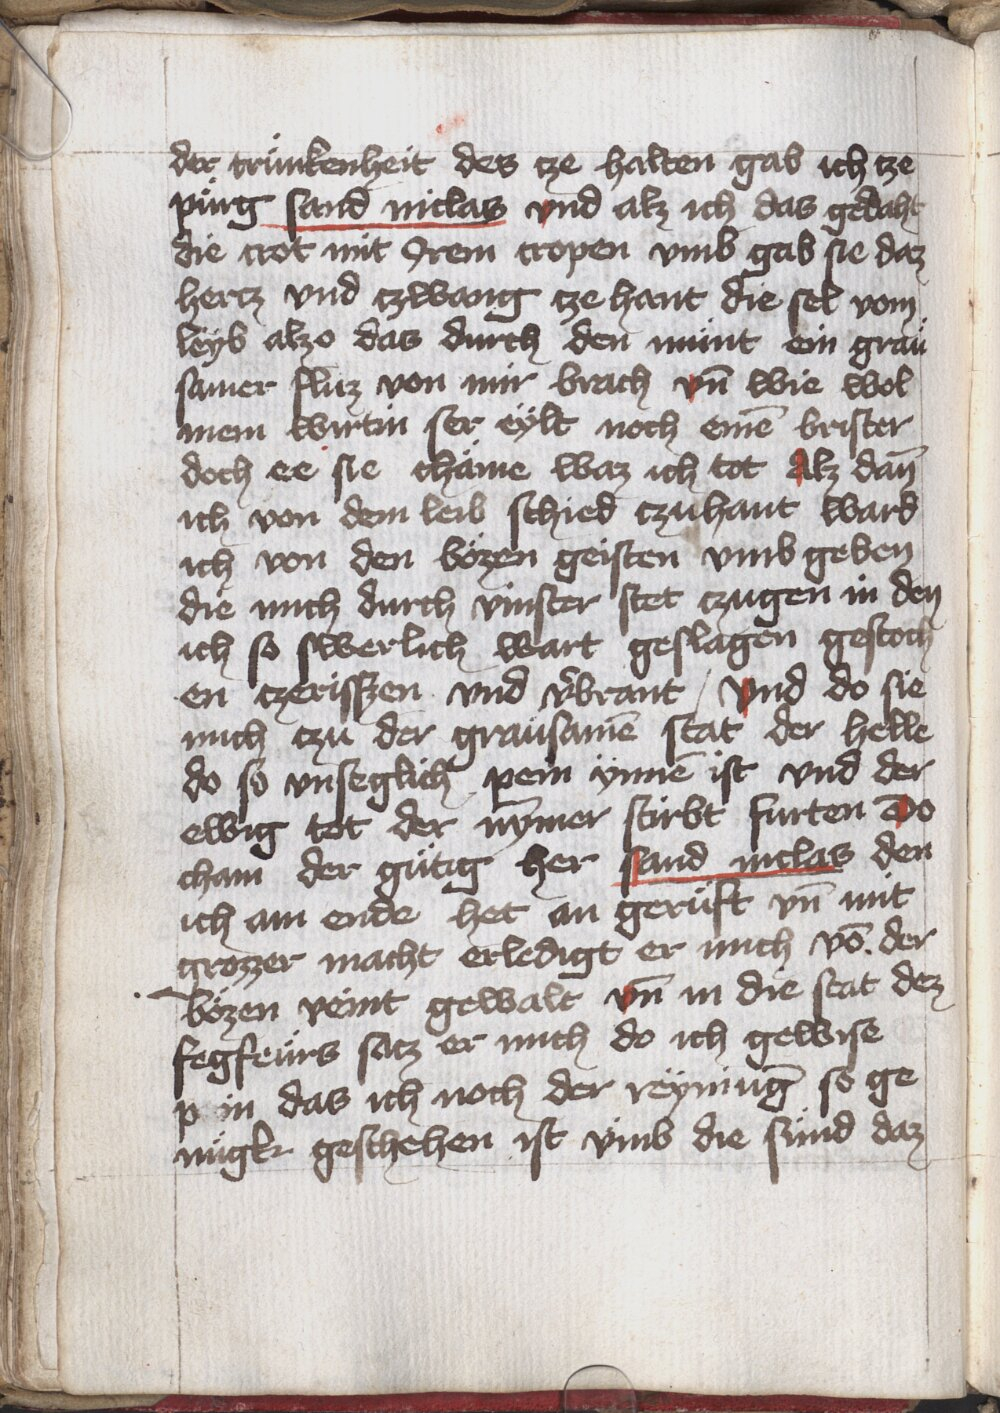 der trünkenheit des tze halten gab ich tze
pürg sand niclas vnd alz ich das gedaht
die crot mit Irem cropen vmb gab sie daz
hertz vnd tzwang tze hant die sel vom
leyb alzo das durch den münt ein graü
samer fluz von mir brach vn̄ wie wol
mein wirtin ser eÿlt noch eine͞ brister
doch ee sie chäme waz ich tot Alz dan̄
ich von dem leib schied tzu hant ward
ich von den bözen geisten vmb geben
die mich durch vinster stet tzugen in den
ich so swerlich wart geslagen gestoch
en tzerisszen vnd v̾brant / Vnd do sie
mich tzu der graüsame͞ stat der helle
do so vnseglich pein ÿnne͞ ist vnd der
ewig tot der nȳmer stirbt furten Do
cham der gütig her sand niclas den
ich am ende het an gerüft vn̄ mit
grozzer macht erledigt er mich vo͞ der
bözen veint gewalt vn̄ in die stat dez
fegfeürs satz er mich do ich gewise
pin das ich noch der reyniug͞ so ge
nügk geschehen ist vmb die sünd daz